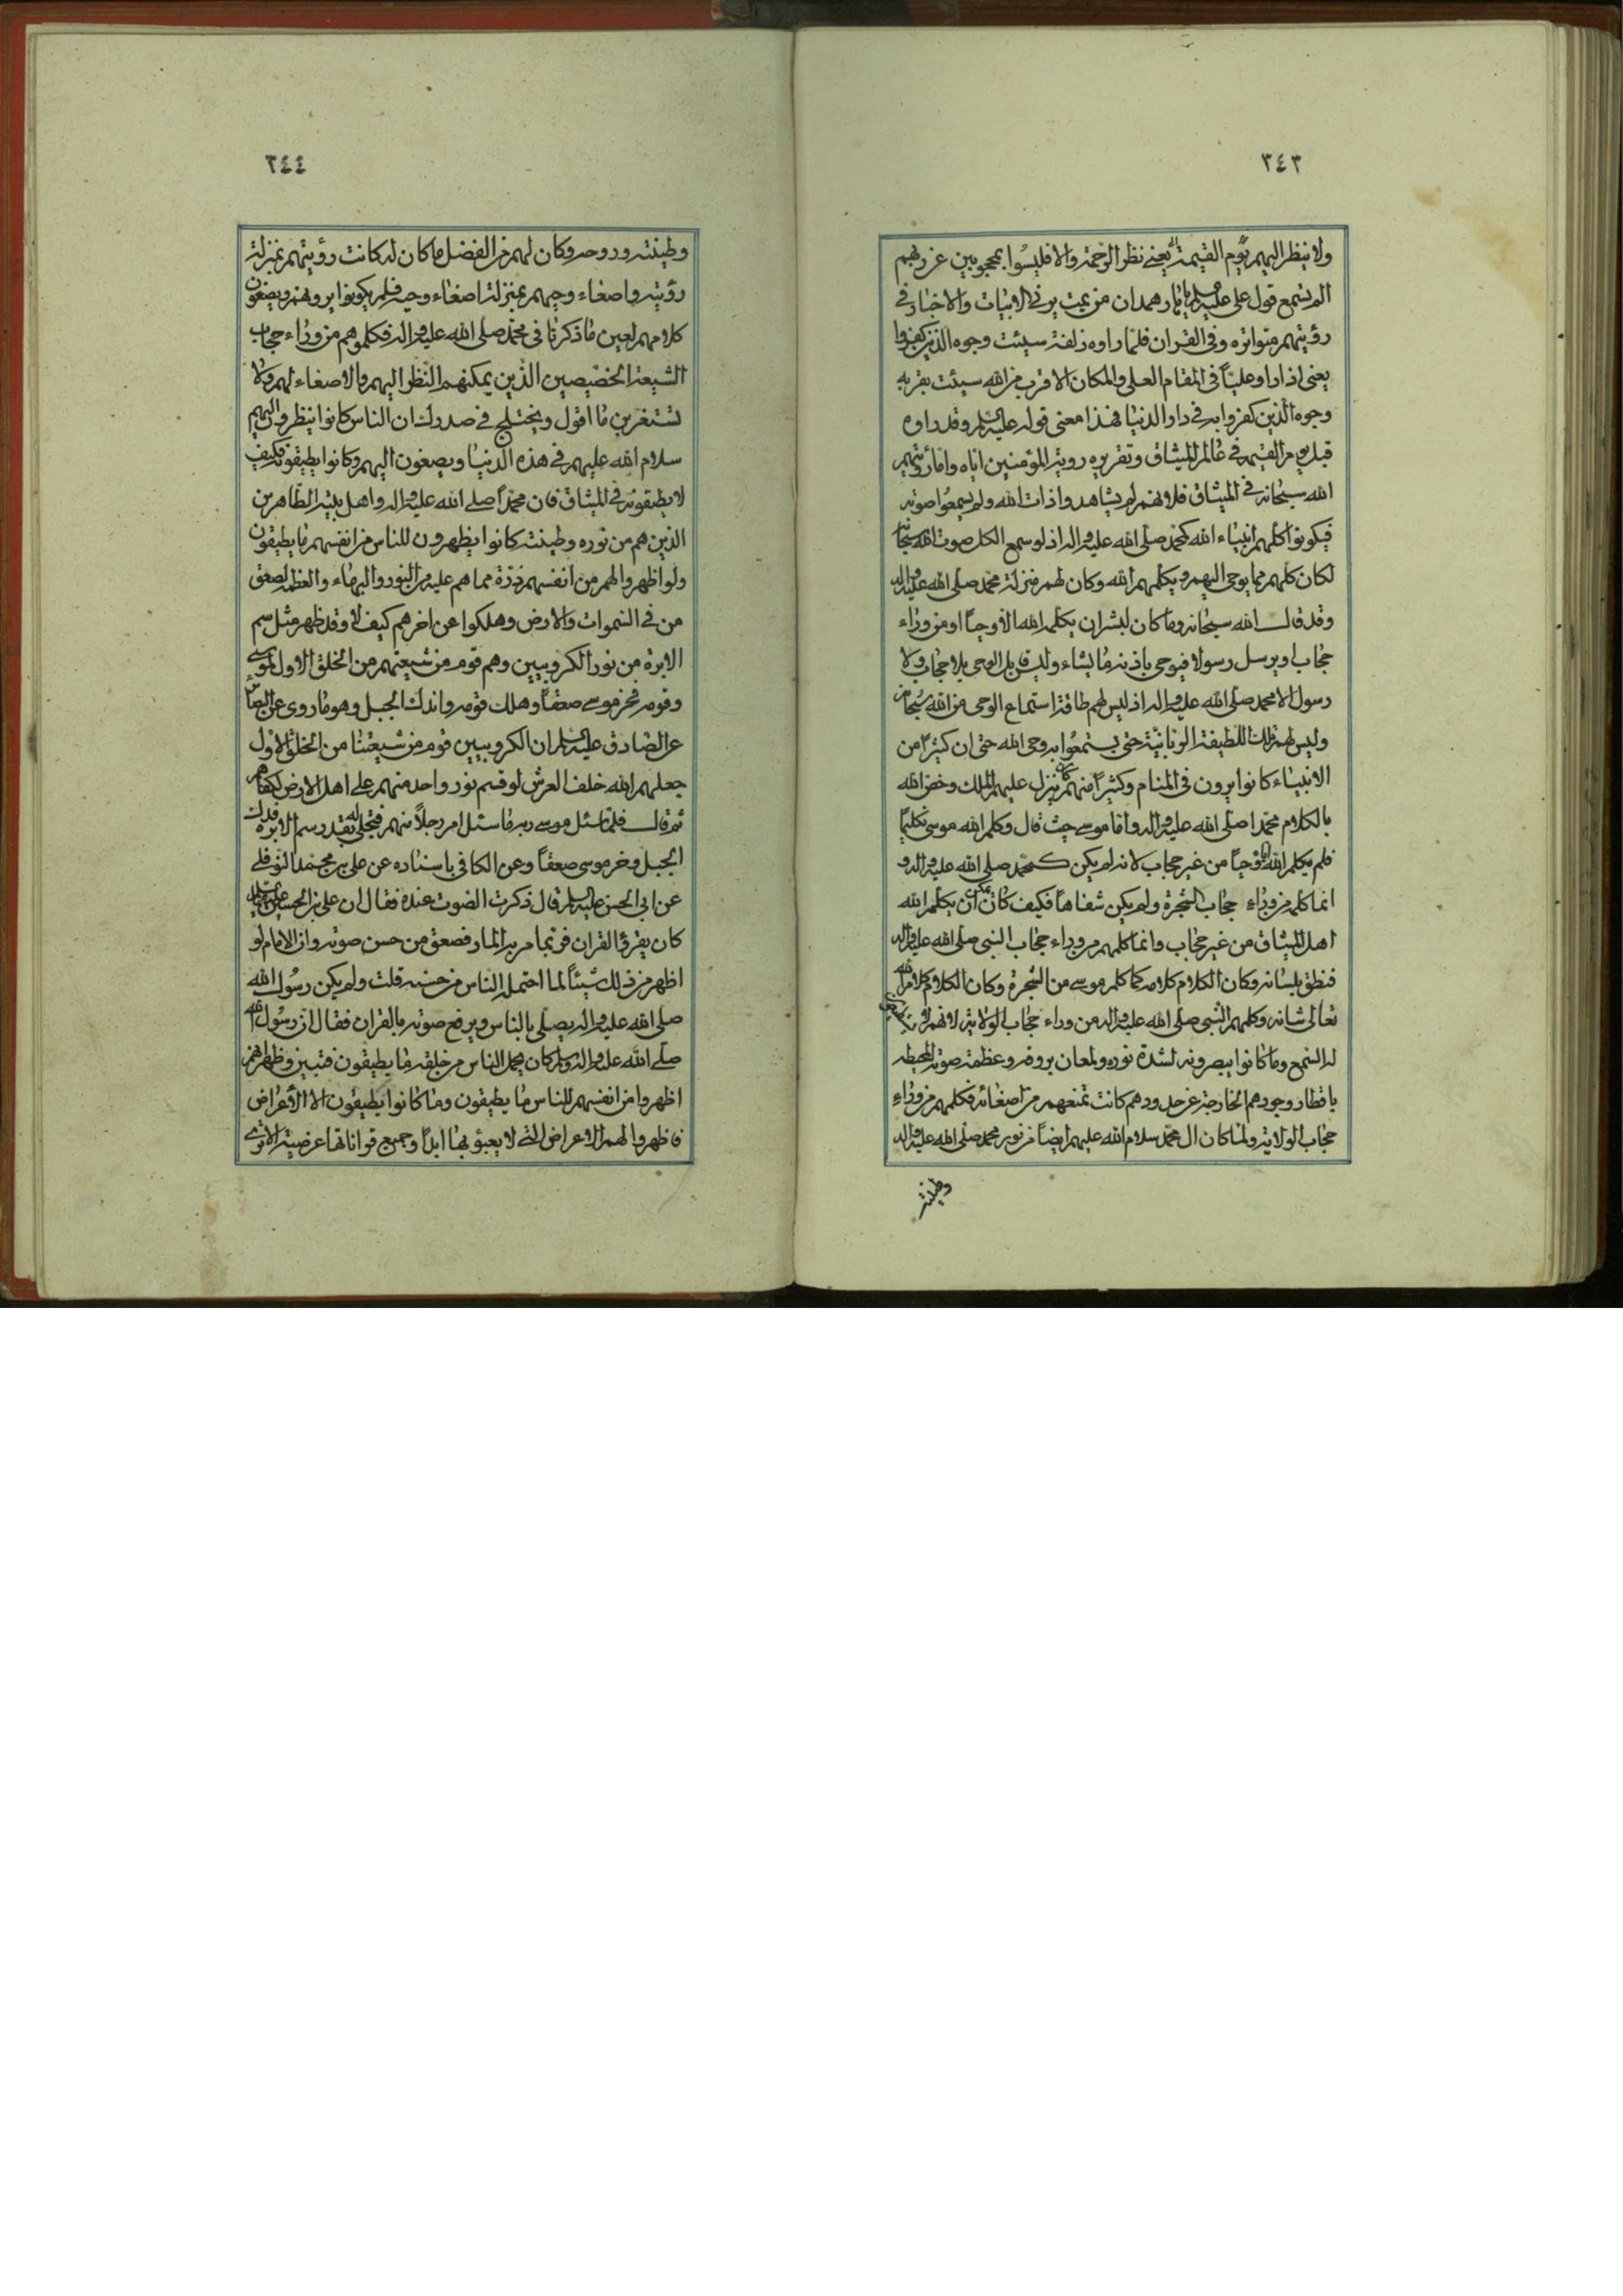 ٣٤٣
ولا ينظر اليهم يوم القيمة يعني نظر الرحمة والا فليسوا بمحجوبين عن ربهم
الم تسمع قول علي عليه السلم يا حار همدان من يمت يرني الابيات والاخبار في
رؤيتهم متواترة وفي القران فلما راوه زلفة سيئت وجوه الذين كفروا
يعني اذا راو عليا في المقام العلي والمكان الاقرب من الله سيئت بقربه
وجوه الذين كفروا به في دار الدنيا فهذا معنى قوله عليه السلم وقد راوه
قبل يوم القيمة في عالم الميثاق وتقريره روية المؤمنين اياه واما رؤيتهم
الله سبحانه في الميثاق فلانهم لم يشاهدوا ذات الله ولم يسمعوا صوته
فيكونوا كلهم انبياء الله كمحمد صلى الله عليه واله اذ لو سمع الكل صوت الله سبحانه
لكان كلهم مما يوحى اليهم ويكلمهم الله وكان لهم منزلة محمد صلى الله عليه واله
وقد قال الله سبحانه وما كان لبشر ان يكلمه الله الا وحيا او من وراء
حجاب او يرسل رسولا فيوحي باذنه ما يشاء وليس قابل الوحي بلا حجاب ولا
رسول الا محمد صلى الله عليه واله اذ ليس لهم طاقة استماع الوحي من الله سبحانه
وليس لهم تلك اللطيفة الربانية حتى يستمعوا به وحي الله حتى ان كثيرا من
الانبياء كانوا يرون في المنام وكثيرا منهم كان ينزل عليهم الملك وخص الله
بالكلام محمدا صلى الله عليه واله واما موسى حيث قال وكلم الله موسى تكليما
فلم يكلم الله اياه وحيا من غير حجاب لانه لم يكن كمحمد صلى الله عليه واله و
انما كلمه من وراء حجاب الشجرة ولم يكن شفاها فكيف كان يمكن ان يكلم الله
اهل الميثاق من غير حجاب وانما كلمهم من وراء حجاب النبي صلى الله عليه واله
فنطق بلسانه وكان الكلام كلامه كما كلم موسى من الشجرة وكان الكلام كلام الله
تعالى شانه وكلمهم النبي صلى الله عليه واله من وراء حجاب الولاية لانهم لم
له السمع وما كانوا يبصرونه لشدة نوره ولمعان بروقه وعظمة صوته المحيطه
باقطار وجودهم الخارجة عن حدودهم كانت تمنعهم من اصغائه فكلمهم من وراء
حجاب الولاية ولما كان ال محمد سلام الله عليهم ايضا من نور محمد صلى الله عليه واله
وطينته
٣٤٤
وطينته وروحه وكان لهم من الفضل ما كان له كانت رؤيتهم بمنزلة
رؤيته واصغاء وحيهم بمنزلة اصغاء وحيه فلم يكونوا يرونهم ويصغون
كلامهم لعين ما ذكرنا في محمد صلى الله عليه واله فكلموهم من وراء حجاب
الشيعة الخصيصين الذين يمكنهم النظر اليهم والاصغاء لهم ولا
تستغربن ما اقول ويختلج في صدرك ان الناس كانوا ينظرون اليهم
سلام الله عليهم في هذه الدنيا ويصغون اليهم وكانوا يطيقونه فكيف
لا يطيقونه في الميثاق فان محمدا صلى الله عليه واله واهل بيته الطاهرين
الذين هم من نوره وطينته كانوا يظهرون للناس من انفسهم ما يطيقون
ولو اظهروا لهم من انفسهم ذرة مما هم عليه من النور والبهاء والعظمة لصعق
من في السموات والارض وهلكوا عن اخرهم كيف لا وقد ظهر مثل سم
الابرة من نور الكروبيين وهم قوم من شيعتهم من الخلق الاول لموسى
وقومه فخر موسى صعقا وهلك قومه واندك الجبل وهو ما روى عن البصائر
عن الصادق عليه السلم ان الكروبيين قوم من شيعتنا من الخلق الاول
جعلهم الله خلف العرش لو قسم نور واحد منهم على اهل الارض لكفاهم
ثم قال فلما سئل موسى ربه ما سئل امر رجلا منهم فتجلى له بقدر سم الابره فدك
الجبل وخر موسى صعقا وعن الكافي باسناده عن علي بن محمد النوفلي
عن ابي الحسن عليه السلم قال ذكرت الصوت عنده فقال ان علي بن الحسين عليهما السلم
كان يقرؤ القران فربما مر به المار فصعق من حسن صوته وان الامام لو
اظهر من ذلك شيئا لما احتمله الناس من حسنه قلت ولم يكن رسول الله
صلى الله عليه واله يصلي بالناس ويرفع صوته بالقران فقال ان رسول الله
صلى الله عليه واله وسلم كان يحمل الناس من خلقه ما يطيقون فتبين وظهر انهم
اظهروا من انفسهم للناس ما يطيقون وما كانوا يطيقون الا الاعراض
فاظهروا لهم الاعراض التي لا يعبؤ بها ابدا وجميع قواناتها عرضية الا ترى